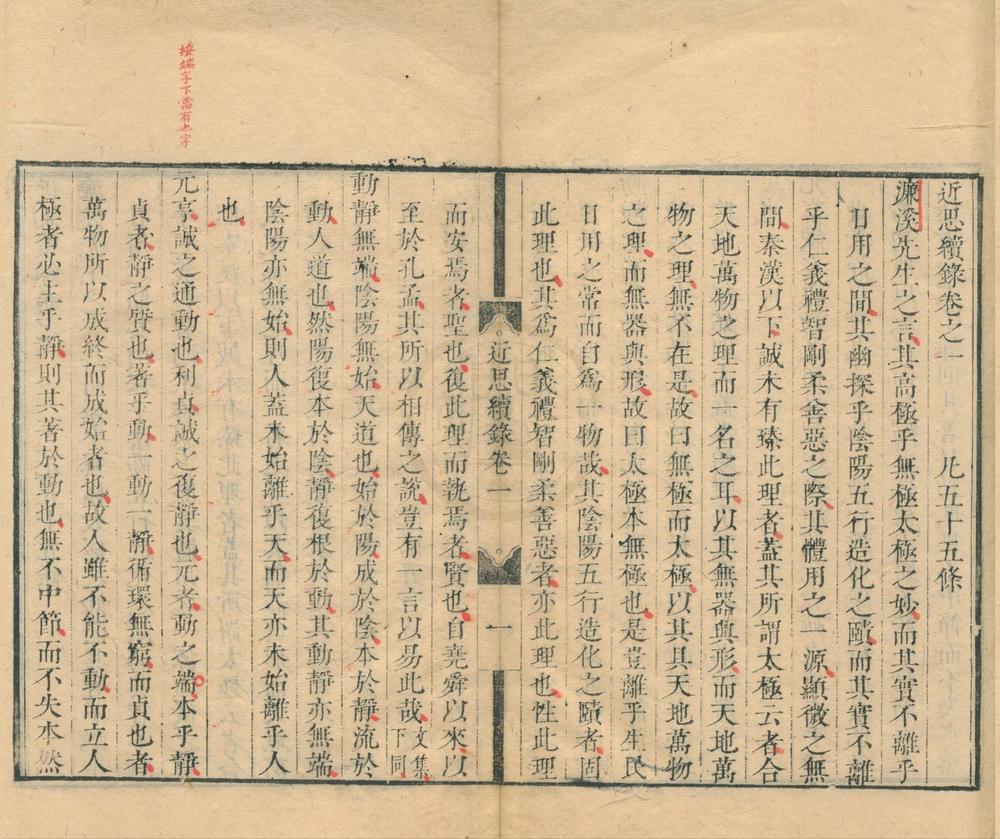 近思續錄卷之一 凡五十五條
濂溪先生之言其高極乎無極太極之妙而其實不離乎
日用之間其幽探乎陰陽五行造化之賾而其實不離
乎仁義禮智剛柔善惡之際其體用之一源顯微之無
間秦漢以下誠未有臻此理者蓋其所謂太極云者合
天地萬物之理而一名之耳以其無器與形而天地萬
物之理無不在是故曰無極而太極以其具天地萬物
之理而無器與形故曰太極本無極也是豈離乎生民
日用之常而自爲一物哉其陰陽五行造化之賾者固
此理也其爲仁義禮智剛柔善惡者亦此理也性此理
近思續錄卷一 一
而安焉者聖也復此理而執焉者賢也自堯舜以來以
至於孔孟其所以相傳之說豈有一言以易此哉文集下同
動靜無端陰陽無始天道也始於陽成於陰本於靜流於
動人道也然陽復本於陰靜復根於動其動靜亦無端
陰陽亦無始則人蓋未始離乎天而天亦未始離乎人
也
元亨誠之通動也利貞誠之復靜也元者動之端本乎靜
貞者靜之質也著乎動一動一靜循環無窮而貞也者
萬物所以成終而成始者也故人雖不能不動而立人
極者必主乎靜則其著於動也無不中節而不失本然
按端字下當有也字